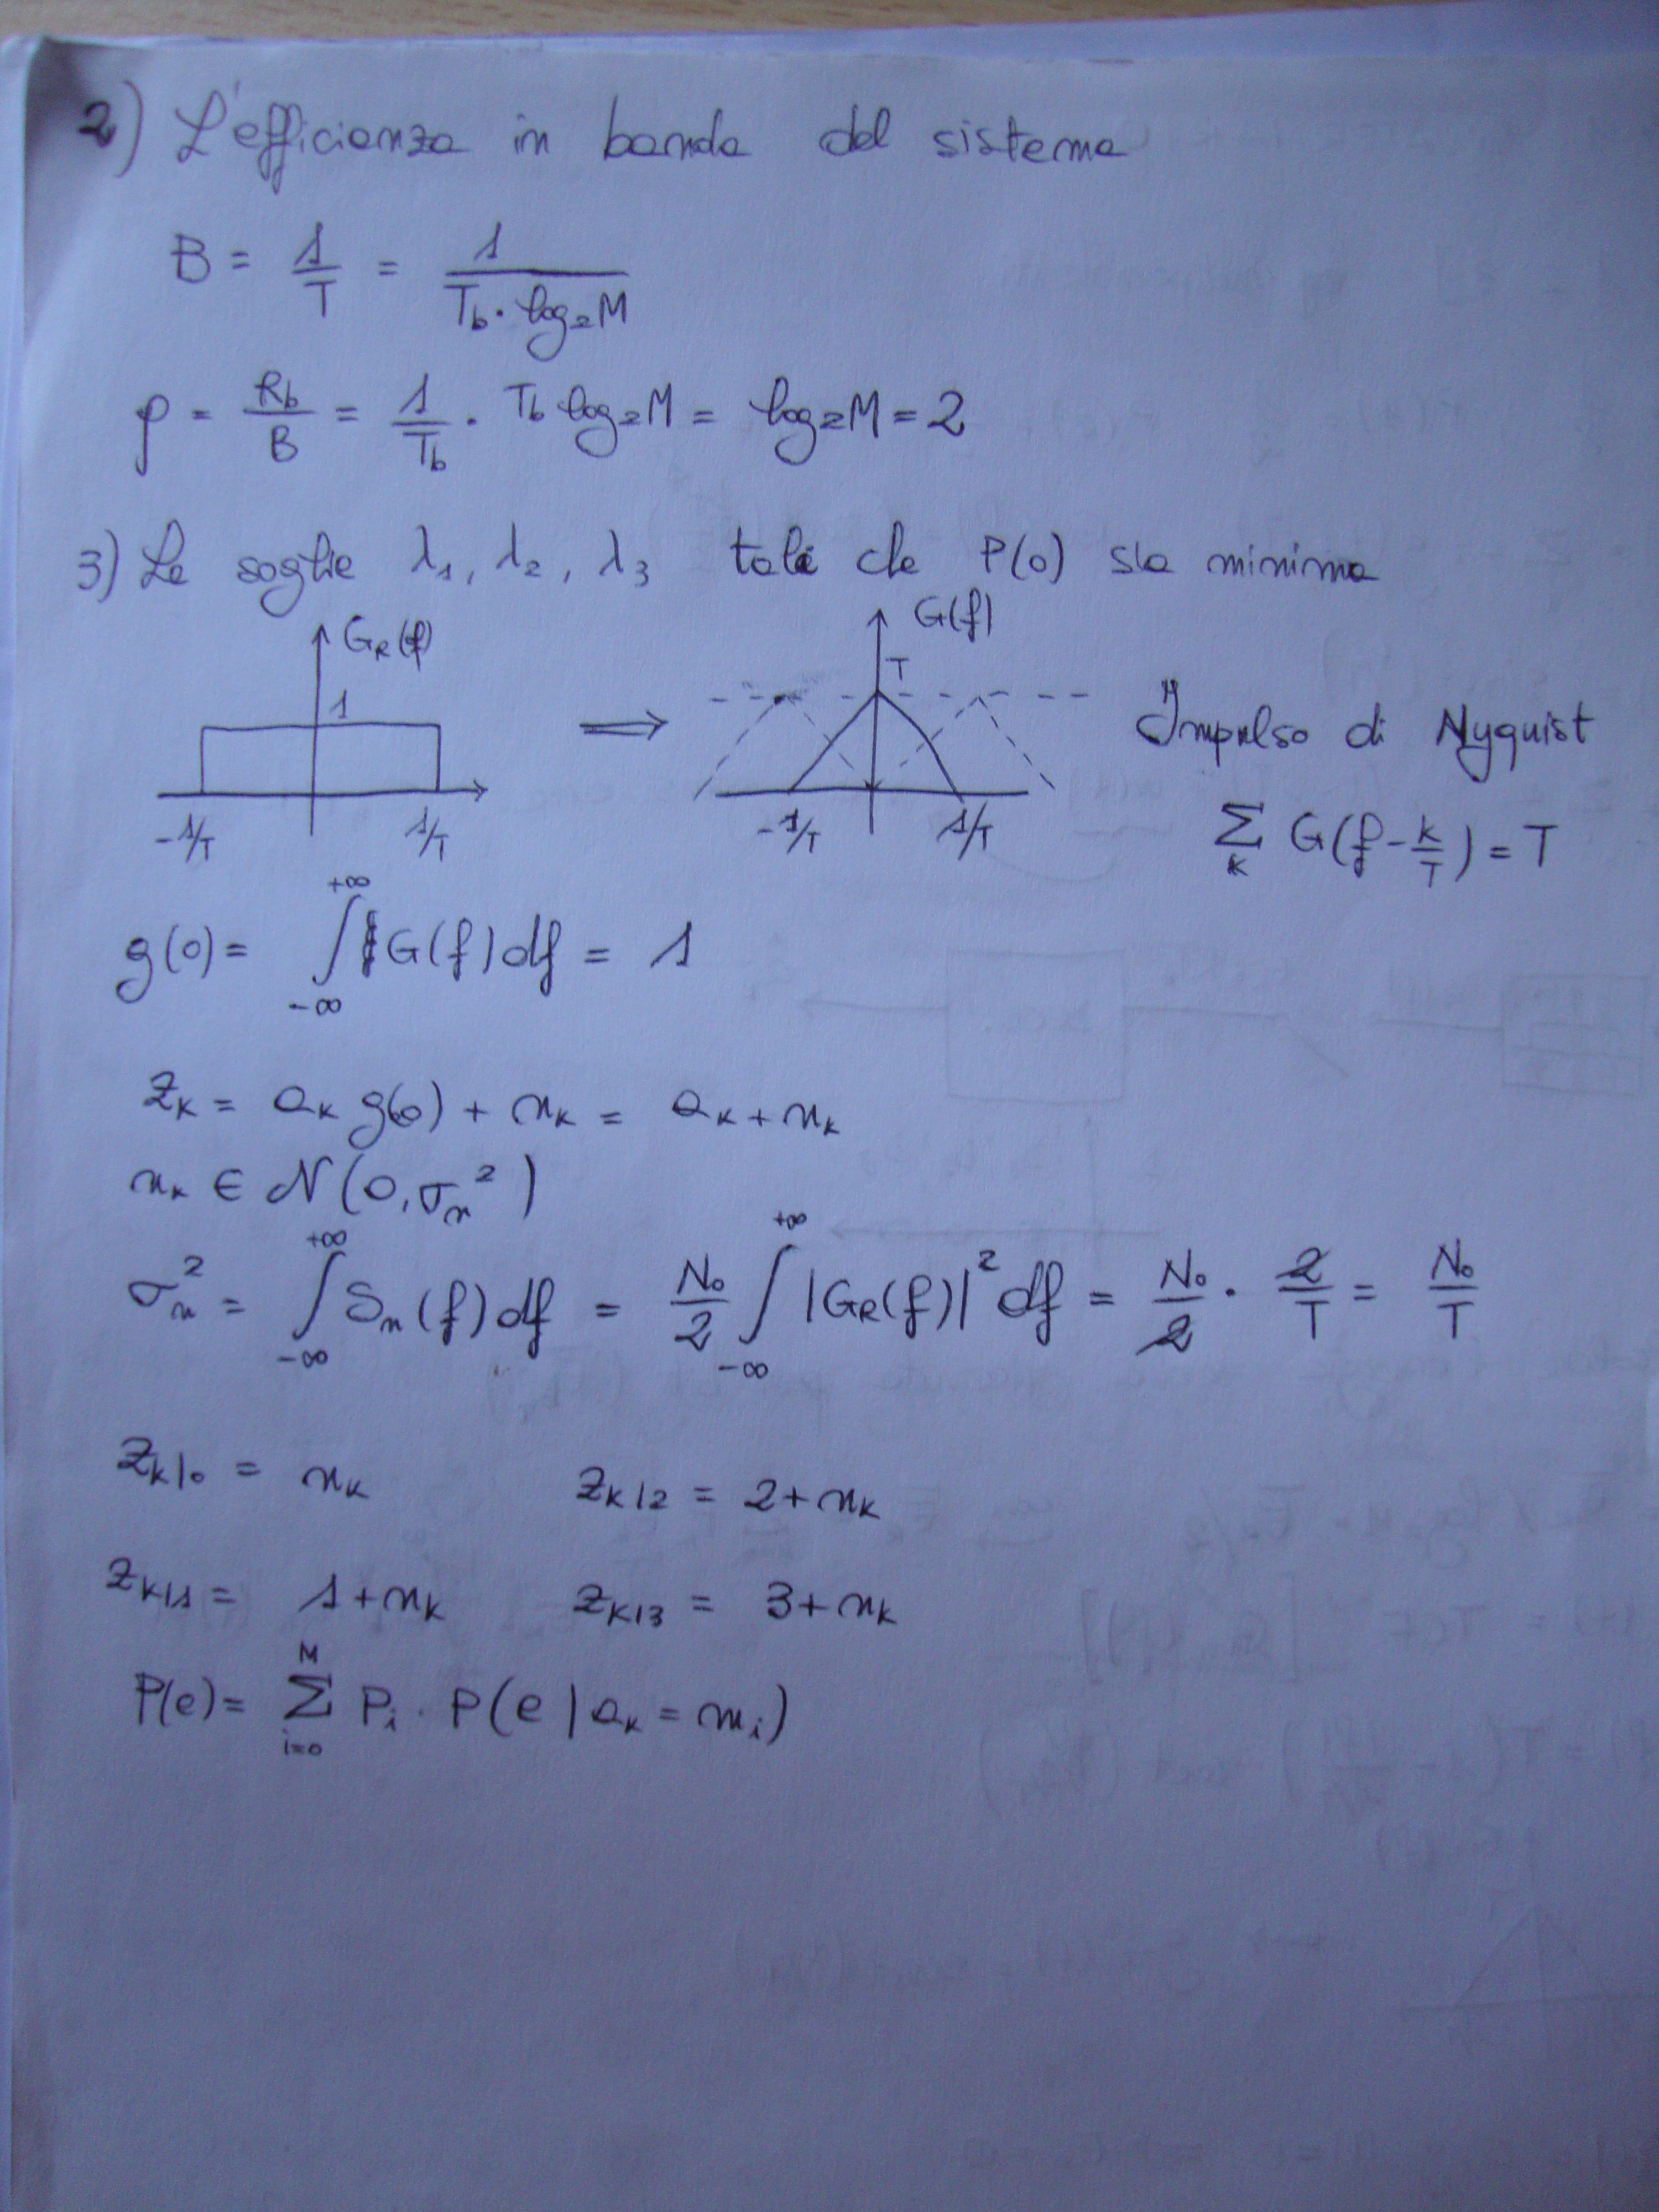 2) L'efficienza in banda del sistema
B = 1/T = 1/(Tb · log₂M)
ρ = Rb/B = 1/Tb · Tb log₂M = log₂M = 2
3) Le soglie λ₁, λ₂, λ₃ tali che P(0) sia minima
G_R(f) 1 -1/T 1/T ⟹ G(f) T -1/T 1/T Impulso di Nyquist
∑_k G(f - k/T) = T
g(0) = ∫_{-∞}^{+∞} G(f) df = 1
z_k = a_k g(0) + n_k = a_k + n_k
n_k ∈ N(0, σ_n²)
σ_n² = ∫_{-∞}^{+∞} S_n(f) df = N₀/2 ∫_{-∞}^{+∞} |G_R(f)|² df = N₀/2 · 2/T = N₀/T
z_{k|0} = n_k z_{k|2} = 2 + n_k
z_{k|1} = 1 + n_k z_{k|3} = 3 + n_k
P(e) = ∑_{i=0}^{M} P_i · P(e | a_k = m_i)